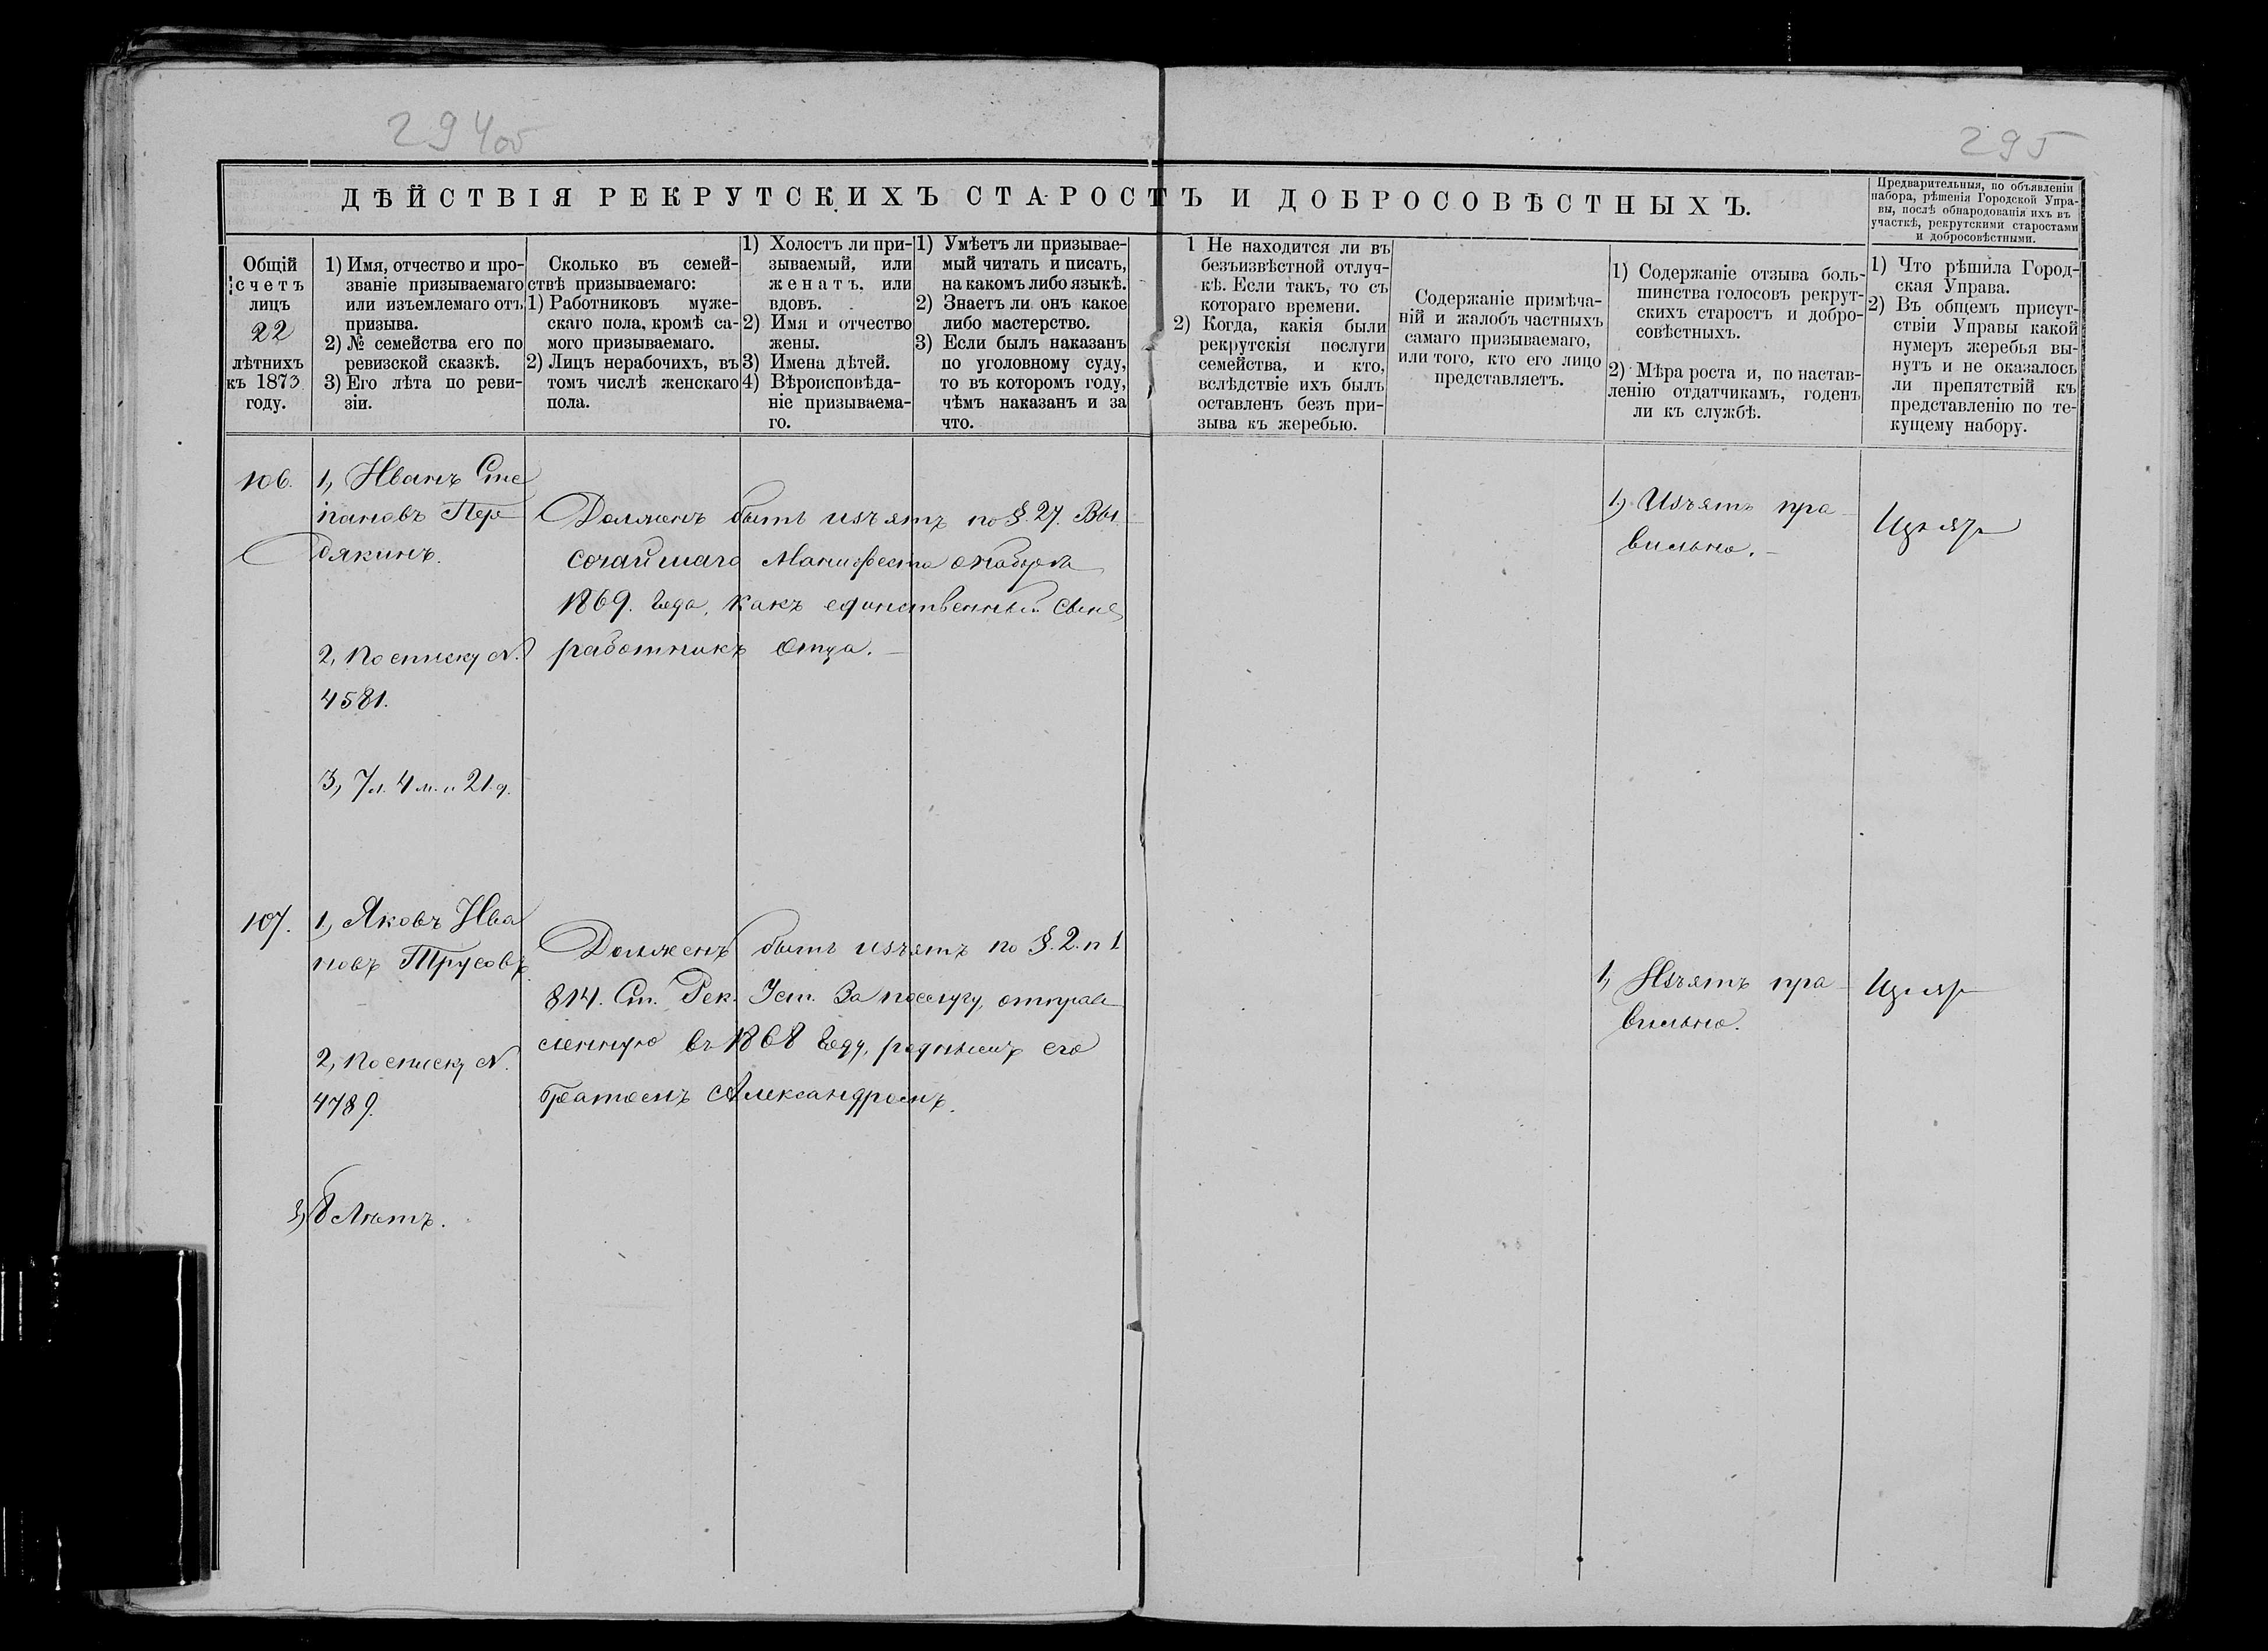 294об
295
ДѢЙСТВІЯ РЕКРУТСКИХЪ СТАРОСТЪ И ДОБРОСОВѢСТНЫХЪ.
Предварительныя, по объявленіи
набора, рѣшенія Городской Упра-
вы, послѣ обнародованія ихъ въ
участкѣ, рекрутскими старостами
и добросовѣстными.
Общій
счетъ
лицъ
22
лѣтнихъ
къ 1873
году.
1) Имя, отчество и про-
званіе призываемаго
или изъемлемаго отъ
призыва.
2) № семейства его по
ревизской сказкѣ.
3) Его лѣта по реви-
зіи.
Сколько въ семей-
ствѣ призываемаго:
1) Работниковъ муже-
скаго пола, кромѣ са-
мого призываемаго.
2) Лицъ нерабочихъ, въ
томъ числѣ женскаго
пола.
1) Холостъ ли при-
зываемый, или
женатъ, или
вдовъ.
2) Имя и отчество
жены.
3) Имена дѣтей.
4) Вѣроисповѣда-
ніе призываема-
го.
1) Умѣетъ ли призывае-
мый читать и писать,
на какомъ либо языкѣ.
2) Знаетъ ли онъ какое
либо мастерство.
3) Если былъ наказанъ
по уголовному суду,
то въ которомъ году,
чѣмъ наказанъ и за
что.
1 Не находится ли въ
безъизвѣстной отлуч-
кѣ. Если такъ, то съ
котораго времени.
2) Когда, какія были
рекрутскія послуги
семейства, и кто,
вслѣдствіе ихъ былъ
оставленъ безъ при-
зыва къ жеребью.
Содержаніе примѣча-
ній и жалобъ частныхъ
самаго призываемаго,
или того, кто его лицо
представляетъ.
1) Содержаніе отзыва боль-
шинства голосовъ рекрут-
скихъ старостъ и добро-
совѣстныхъ.
2) Мѣра роста и, по настав-
ленію отдатчикамъ, годенъ
ли къ службѣ.
1) Что рѣшила Город-
ская Управа.
2) Въ общемъ присут-
ствіи Управы какой
нумеръ жеребья вы-
нутъ и не оказалось
ли препятствій къ
представленію по те-
кущему набору.
106.
1, Иванъ Сте
пановъ Пер
дякинъ.
2, По списку №.
4581.
3, 7 л. 4 м. и 21. д.
Долженъ быть изъятъ по §. 27. Вы
сочайшаго Манифеста о наборѣ
1869. года, какъ единственный сынъ
работникъ отца. –
1, Изъятъ пра
вильно. –
107.
1, Яковъ Ива
новъ Трусовъ
2, По списку №.
4789.
3, 8 лѣтъ.
Долженъ быть изъятъ по §. 2. п 1
814. Ст. Рек. Уст. За послугу, отправ
ленную въ 1868 году, роднымъ его
братомъ Александромъ.
1, Изъятъ пра
вильно.